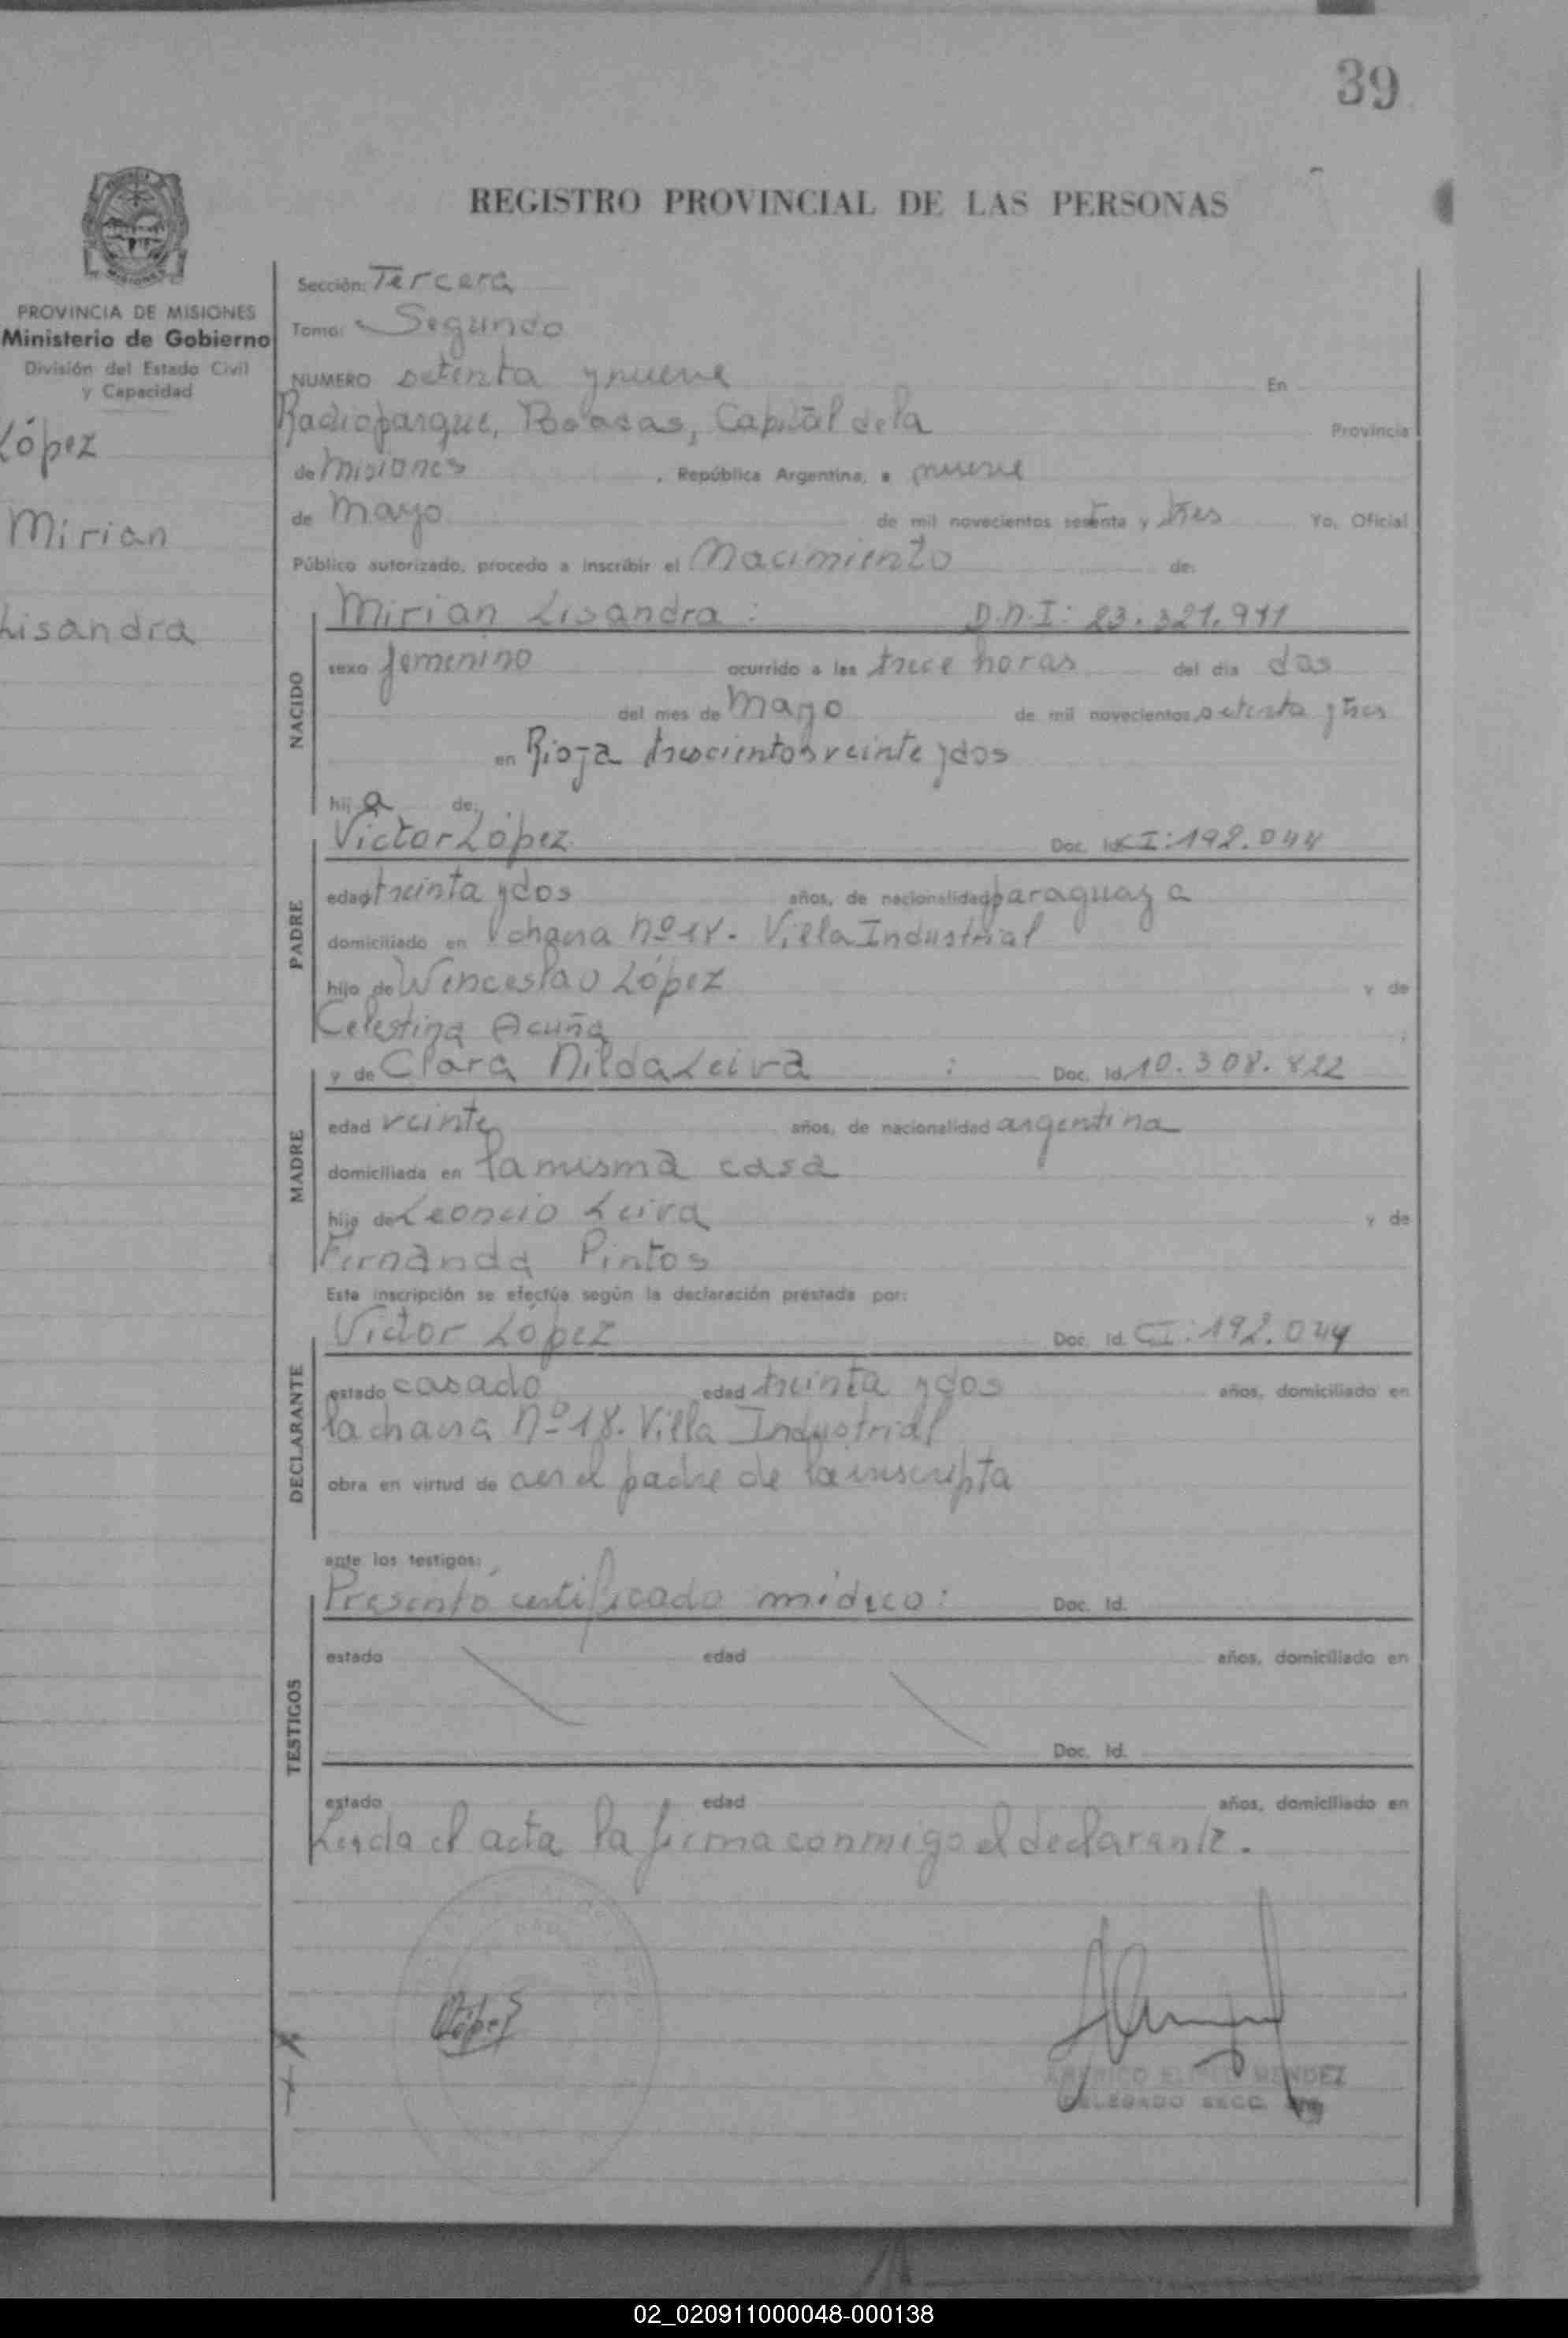 39
REGISTRO PROVINCIAL DE LAS PERSONAS
PROVINCIA DE MISIONES
Ministerio de Gobierno
División del Estado Civil
y Capacidad
López
Mirian
Lisandra
Sección: Tercera
Tomo: Segundo
NUMERO setenta y nueve En
Radioparque, Posadas, Capital de la Provincia
de Misiones, República Argentina, a nueve
de Mayo de mil novecientos setenta y tres Yo, Oficial
Público autorizado, procedo a inscribir el Nacimiento de:
NACIDO
Mirian Lisandra: D.N.I: 23.321.911
sexo femenino ocurrido a las trece horas del día dos
del mes de Mayo de mil novecientos setenta y tres
en Rioja trescientos veinte y dos
hij a de:
PADRE
Victor López Doc. Id. CI: 192.044
edad treinta y dos años, de nacionalidad paraguaya
domiciliado en chacra Nº 18. Villa Industrial
hijo de Wenceslao López y de
Celestina Acuña
MADRE
y de Clara Nilda Leiva : Doc. Id. 10.308.822
edad veinte años, de nacionalidad argentina
domiciliada en la misma casa
hija de Leoncio Leiva y de
Fernanda Pintos
Esta inscripción se efectúa según la declaración prestada por:
DECLARANTE
Victor López Doc. Id. CI: 192.044
estado casado edad treinta y dos años, domiciliado en
la chacra Nº 18. Villa Industrial
obra en virtud de ser el padre de la inscripta
ante los testigos:
TESTIGOS
Presentó certificado médico: Doc. Id.
estado edad años, domiciliado en
Doc. Id.
estado edad años, domiciliado en
Leida el acta la firma conmigo el declarante.
López
MENDEZ
DELEGADO SECC.
02_020911000048-000138